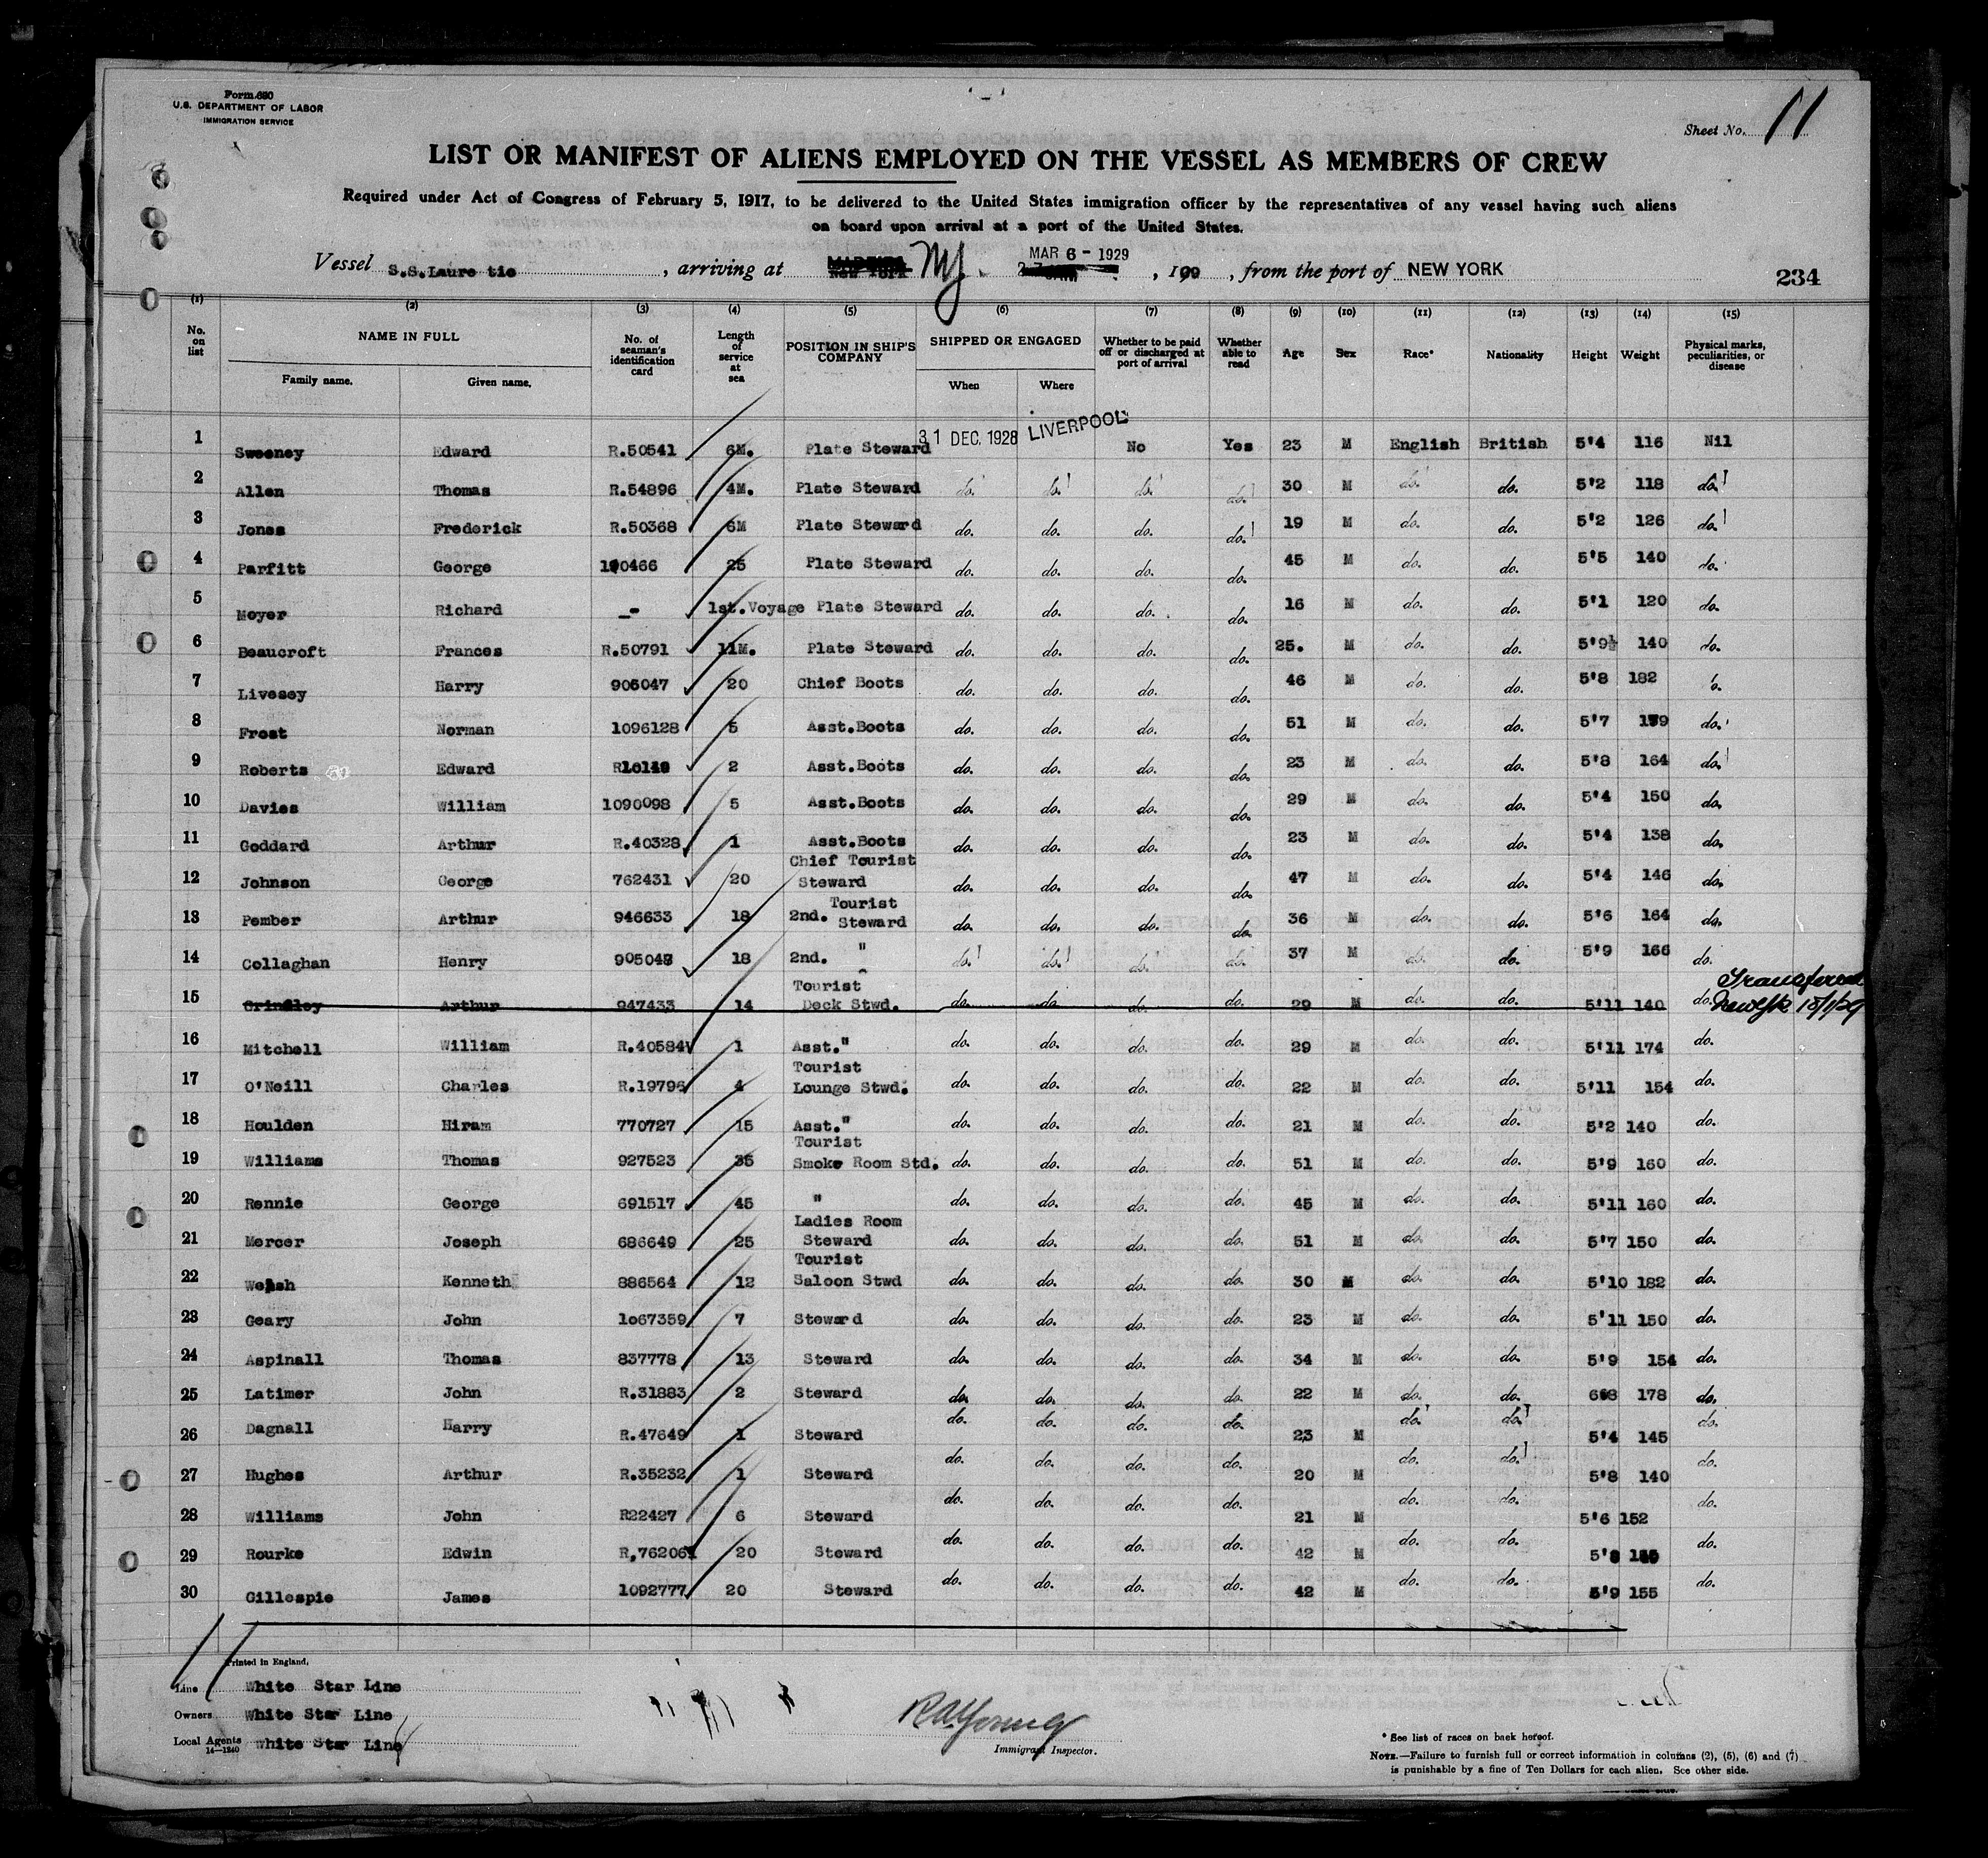 Form 680
U.S. DEPARTMENT OF LABOR
IMMIGRATION SERVICE
Sheet No. 11
LIST OR MANIFEST OF ALIENS EMPLOYED ON THE VESSEL AS MEMBERS OF CREW
Required under Act of Congress of February 5, 1917, to be delivered to the United States immigration officer by the representatives of any vessel having such aliens
on board upon arrival at a port of the United States.
Vessel S.S.Laure tic , arriving at New York NY. MAR 6 - 1929 , 19 , from the port of NEW YORK
234
(1) (2) (3) (4) (5) (6) (7) (8) (9) (10) (11) (12) (13) (14) (15)
No. on list NAME IN FULL Family name. Given name. No. of seaman's identification card Length of service at sea POSITION IN SHIP'S COMPANY SHIPPED OR ENGAGED When Where Whether to be paid off or discharged at port of arrival Whether able to read Age Sex Race* Nationality Height Weight Physical marks, peculiarities, or disease
1 Sweeney Edward R.50541 6M. Plate Steward 31 DEC. 1928 LIVERPOOL No Yes 23 M English British 5'4 116 Nil
2 Allen Thomas R.54896 4M. Plate Steward do. do. do. do. 30 M do. do. 5'2 118 do.
3 Jones Frederick R.50368 6M Plate Steward do. do. do. do. 19 M do. do. 5'2 126 do.
4 Parfitt George 0466 25 Plate Steward do. do. do. do. 45 M do. do. 5'5 140 do.
5 Moyer Richard - 1st.Voyage Plate Steward do. do. do. do. 16 M do. do. 5'1 120 do.
6 Beaucroft Frances R.50791 11M. Plate Steward do. do. do. do. 25. M do. do. 5'9½ 140 do.
7 Livesey Harry 905047 20 Chief Boots do. do. do. do. 46 M do. do. 5'8 182 do.
8 Frost Norman 1096128 5 Asst.Boots do. do. do. do. 51 M do. do. 5'7 do.
9 Roberts Edward 2 Asst.Boots do. do. do. do. 23 M do. do. 5'8 164 do.
10 Davies William 1090098 5 Asst.Boots do. do. do. do. 29 M do. do. 5'4 150 do.
11 Goddard Arthur R.40328 1 Asst.Boots do. do. do. do. 23 M do. do. 5'4 138 do.
12 Johnson George 762431 20 Chief Tourist Steward do. do. do. do. 47 M do. do. 5'4 146 do.
13 Pember Arthur 946633 18 2nd. Tourist Steward do. do. do. do. 36 M do. do. 5'6 164 do.
14 Collaghan Henry 905048 18 2nd. " do. do. do. do. 37 M do. do. 5'9 166 do.
15 Grindley Arthur 947433 14 Tourist Deck Stwd. do. do. do. do. 29 M do. do. 5'11 140 do. Transferred
16 Mitchell William R.40584 1 Asst." do. do. do. do. 29 M do. do. 5'11 174 do.
17 O'Neill Charles R.19796 4 Tourist Lounge Stwd. do. do. do. do. 22 M do. do. 5'11 154 do.
18 Houlden Hiram 770727 15 Asst." do. do. do. do. 21 M do. do. 5'2 140 do.
19 Williams Thomas 927523 35 Tourist Smoke Room Std. do. do. do. do. 51 M do. do. 5'9 160 do.
20 Rennie George 691517 45 " do. do. do. do. 45 M do. do. 5'11 160 do.
21 Mercer Joseph 686649 25 Ladies Room Steward do. do. do. do. 51 M do. do. 5'7 150 do.
22 Welsh Kenneth 886564 12 Tourist Saloon Stwd do. do. do. do. 30 M do. do. 5'10 182 do.
23 Geary John 1067359 7 Steward do. do. do. do. 23 M do. do. 5'11 150 do.
24 Aspinall Thomas 837778 13 Steward do. do. do. do. 34 M do. do. 5'9 154 do.
25 Latimer John R.31883 2 Steward do. do. do. do. 22 M do. do. 178 do.
26 Dagnall Harry R.47649 1 Steward do. do. do. do. 23 M do. do. 5'4 145 do.
27 Hughes Arthur R.35232 1 Steward do. do. do. do. 20 M do. do. 5'8 140 do.
28 Williams John R22427 6 Steward do. do. do. do. 21 M do. do. 5'6 152 do.
29 Rourke Edwin 20 Steward do. do. do. do. 42 M do. do. do.
30 Gillespie James 1092777 20 Steward do. do. do. do. 42 M do. do. 5'9 155 do.
Printed in England.
Line White Star Line
Owners White Star Line
Local Agents White Star Line
14—1240
Immigrant Inspector.
* See list of races on back hereof.
NOTE.—Failure to furnish full or correct information in columns (2), (5), (6) and (7)
is punishable by a fine of Ten Dollars for each alien. See other side.